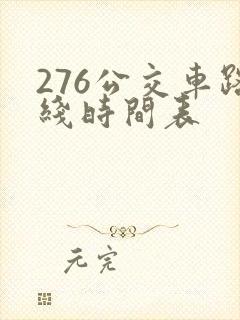 276公交車路
綫時間表
元完